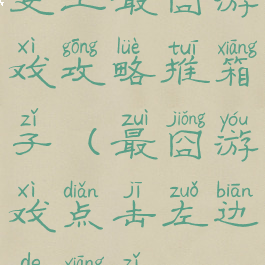 史上最囧游
xì gōng lüè tuī xiāng
戏攻略推箱
zǐ zuì jiǒng yóu
子(最囧游
xì diǎn jī zuǒ biān
戏点击左边
de xiāng zǐ